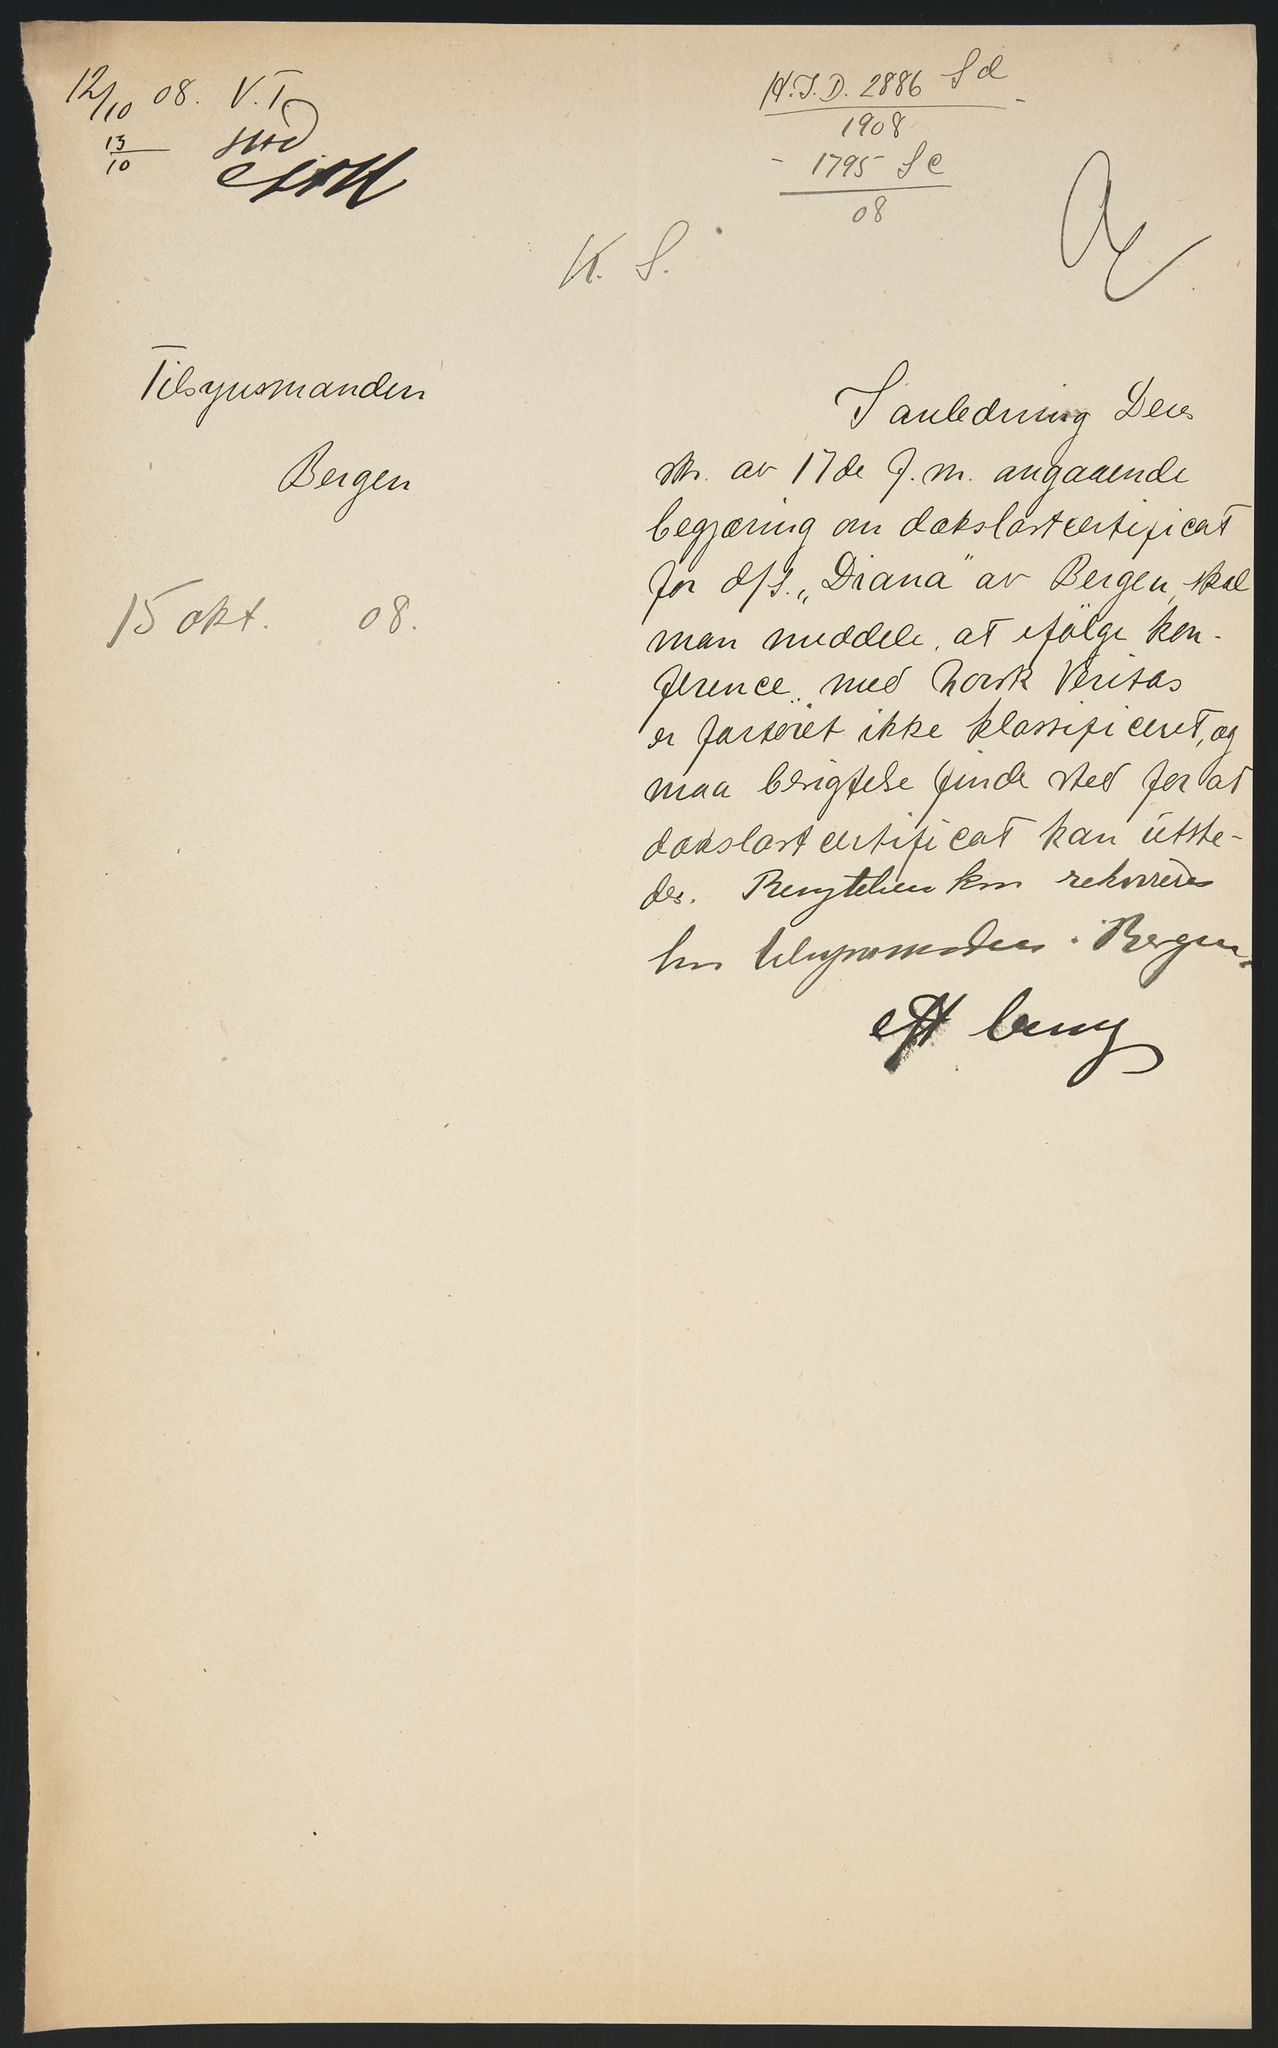 12/10 08. V.T.
13/10
H.I.D. 2886 Sd
1908
- 1795 Sc
08
K. S.
Tilsynsmanden
Bergen
15 okt. 08.
I anledning Deres
skr. av 17de f. m. angaaende
begjæring om dækslastcertificat
for d/s. „Diana" av Bergen, skal
man meddele, at ifølge kon-
ference med Norsk Veritas
er fartøiet ikke klassificeret, og
maa besigtelse finde sted for at
dækslastcertificat kan utste-
des. Besigtelsen kan rekvireres
hos tilsynsmanden i Bergen.